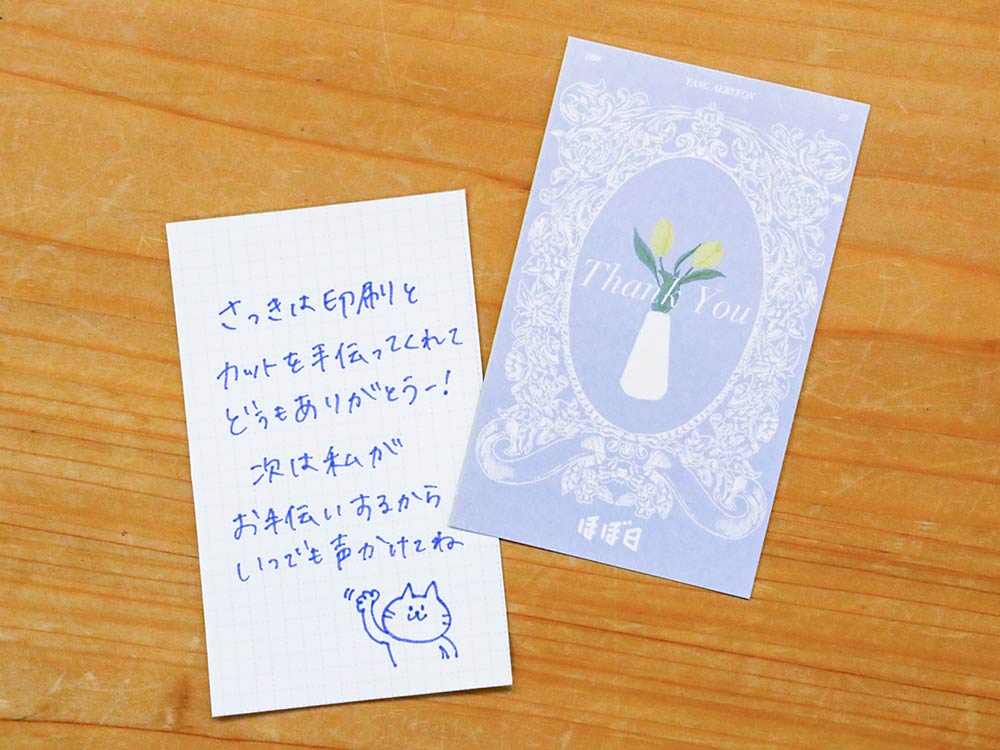 さっきは印刷と
カットを手伝ってくれて
どうもありがとうー!
次は私が
お手伝いするから
いつでも声かけてね
YANG AERYEON
01
Thank You
ほぼ日